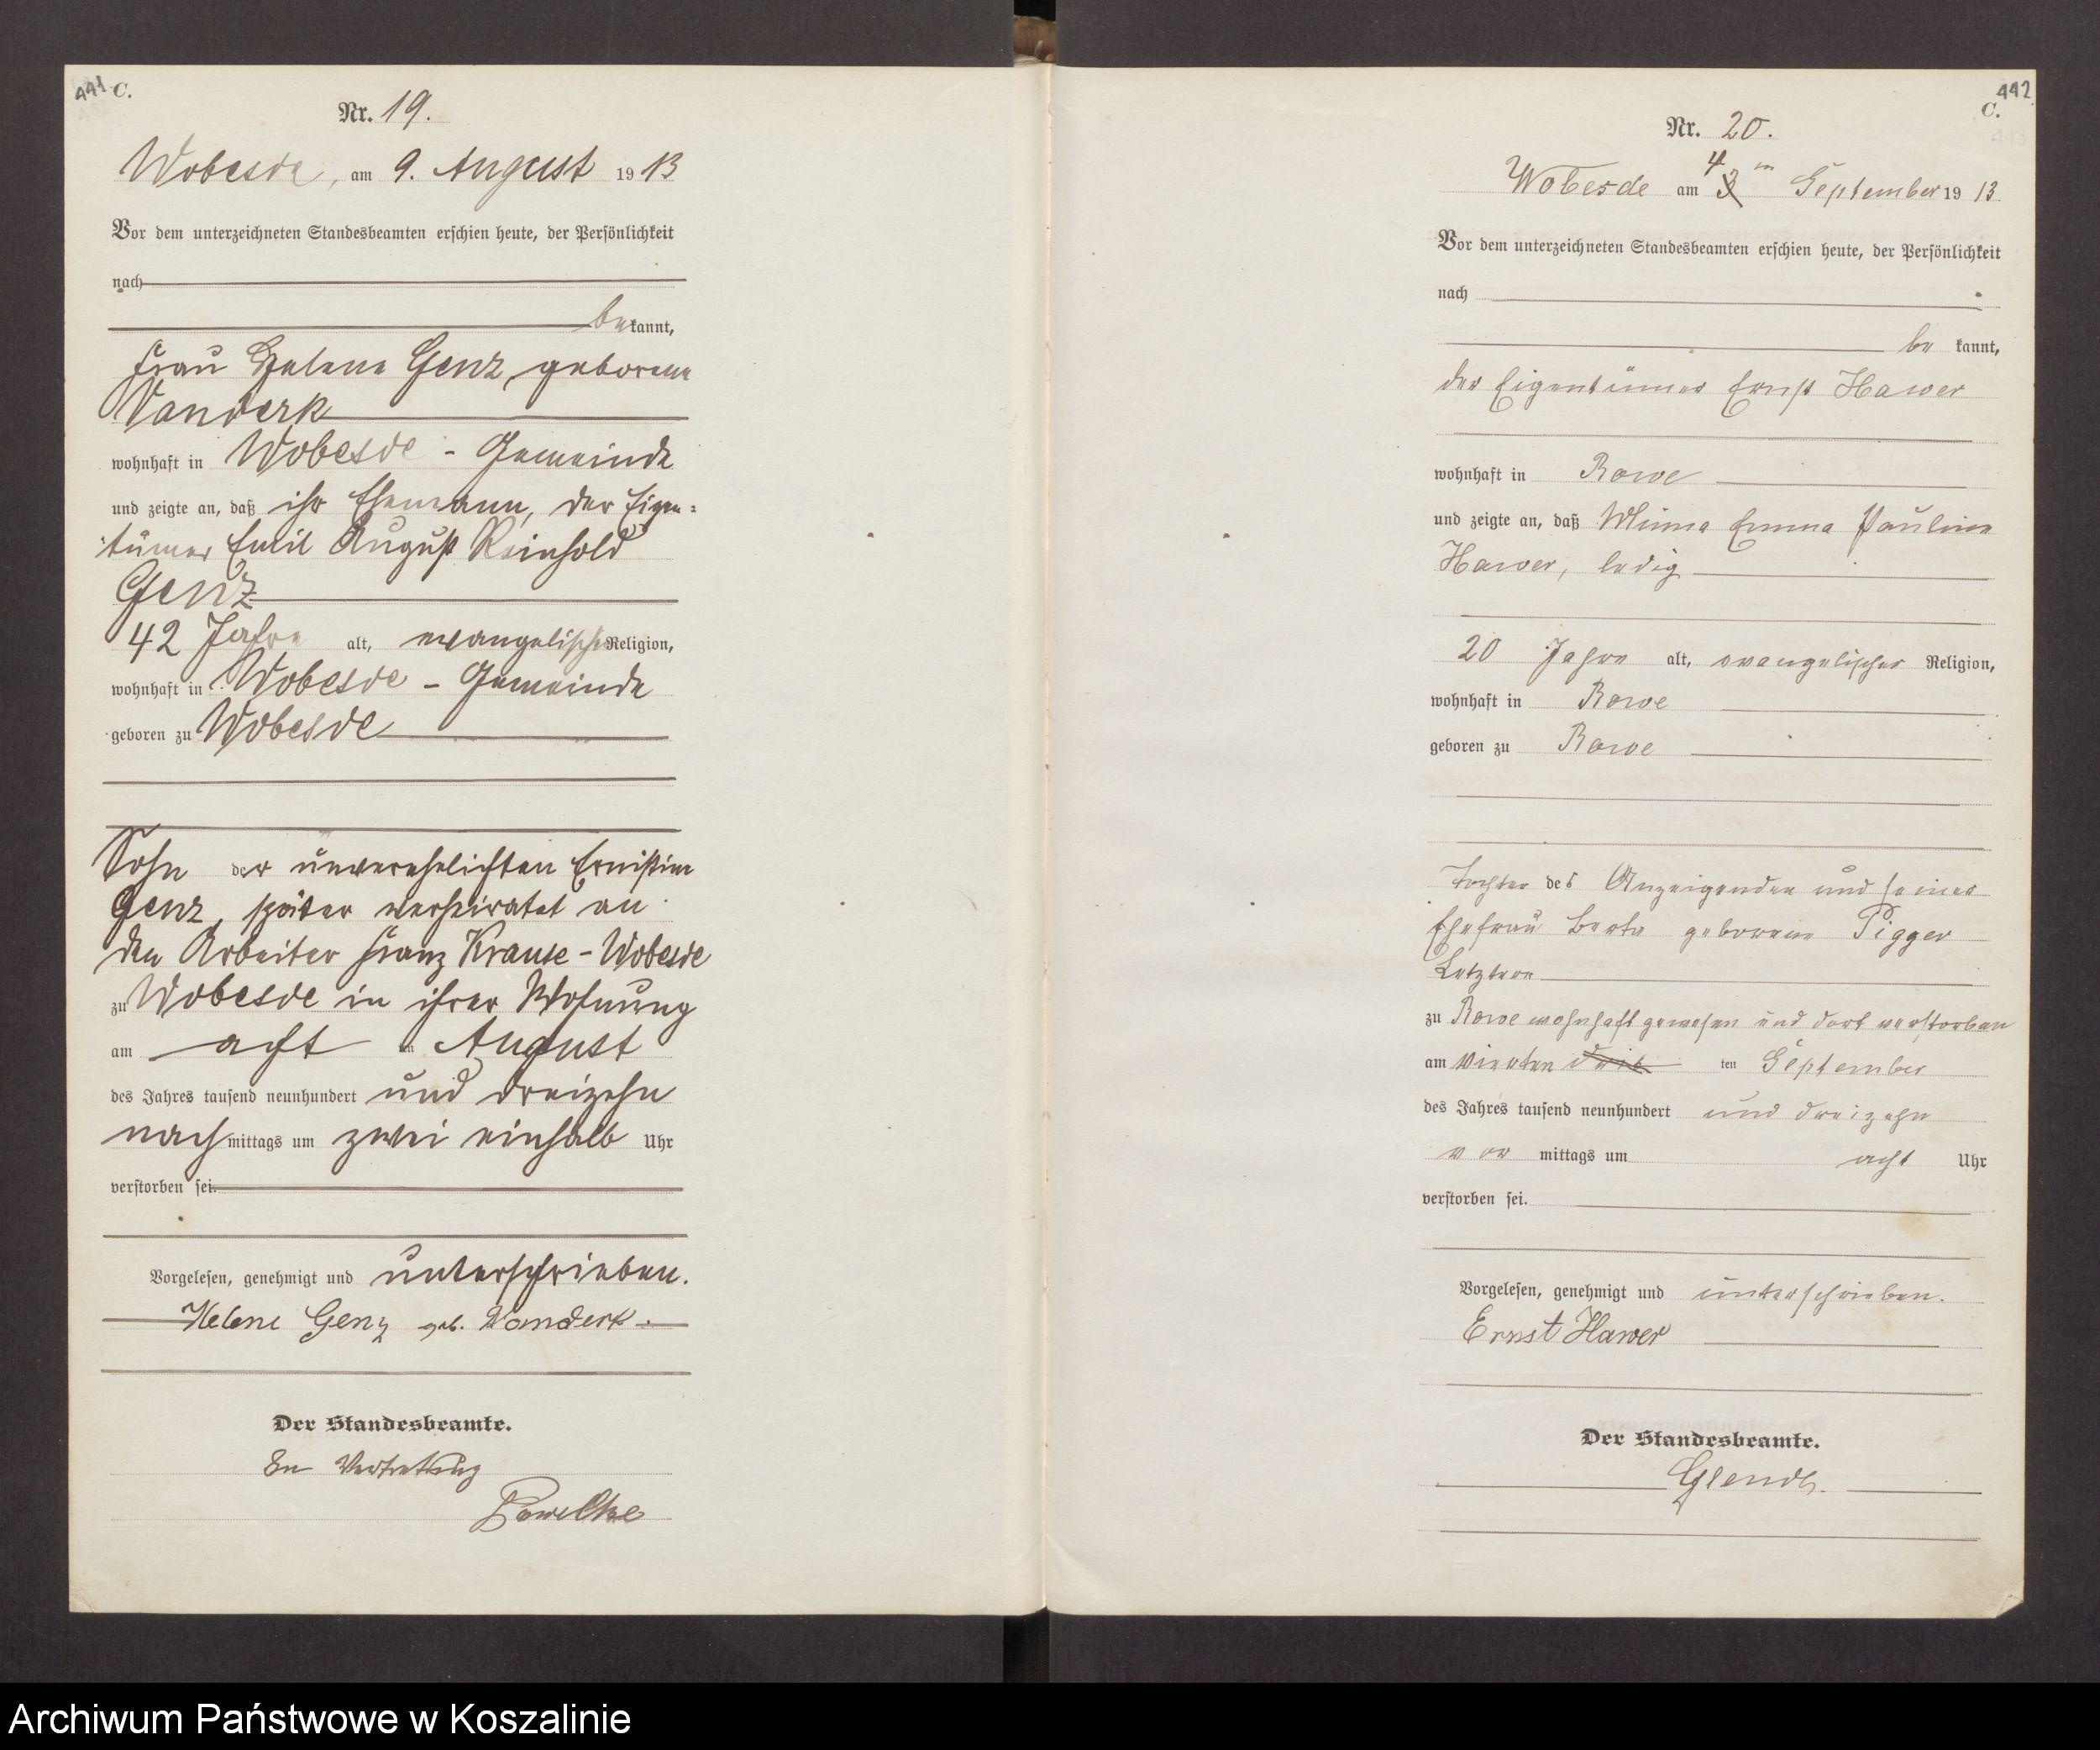 441 C.
Nr. 19.
Wobesde, am 9. August 1913
Vor dem unterzeichneten Standesbeamten erschien heute, der Persönlichkeit
nach
bekannt,
Frau Helene Genz, geborene
Vanderk
wohnhaft in Wobesde - Gemeinde
und zeigte an, daß ihr Ehemann, der Eigen=
tümer Emil August Reinhold
Genz
42 Jahre alt, evangelischer Religion,
wohnhaft in Wobesde - Gemeinde
geboren zu Wobesde
Sohn der unverehelichten Ernistine
Genz, später verheiratet an
den Arbeiter Franz Krause - Wobesde
zu Wobesde in ihrer Wohnung
am acht ten August
des Jahres tausend neunhundert und dreizehn
nachmittags um zwei einhalb Uhr
verstorben sei.
Vorgelesen, genehmigt und unterschrieben.
Helene Genz geb. Wanderk.
Der Standesbeamte.
In Vertretung
442
C.
Nr. 20.
Wobesde am 4 3 ten September 1913
Vor dem unterzeichneten Standesbeamten erschien heute, der Persönlichkeit
nach
be kannt,
der Eigentümer Ernst Hawer
wohnhaft in Rowe
und zeigte an, daß Minna Emma Pauline
Hawer, ledig
20 Jahre alt, evangelischer Religion,
wohnhaft in Rowe
geboren zu Rowe
Tochter des Anzeigenden und seiner
Ehefrau Berta geborene Pigger
Letztere
zu Rowe wohnhaft gewesen und dort verstorben
am vierten drit ten September
des Jahres tausend neunhundert und dreizehn
vor mittags um acht Uhr
verstorben sei.
Vorgelesen, genehmigt und unterschrieben.
Ernst Hawer
Der Standesbeamte.
Archiwum Państwowe w Koszalinie